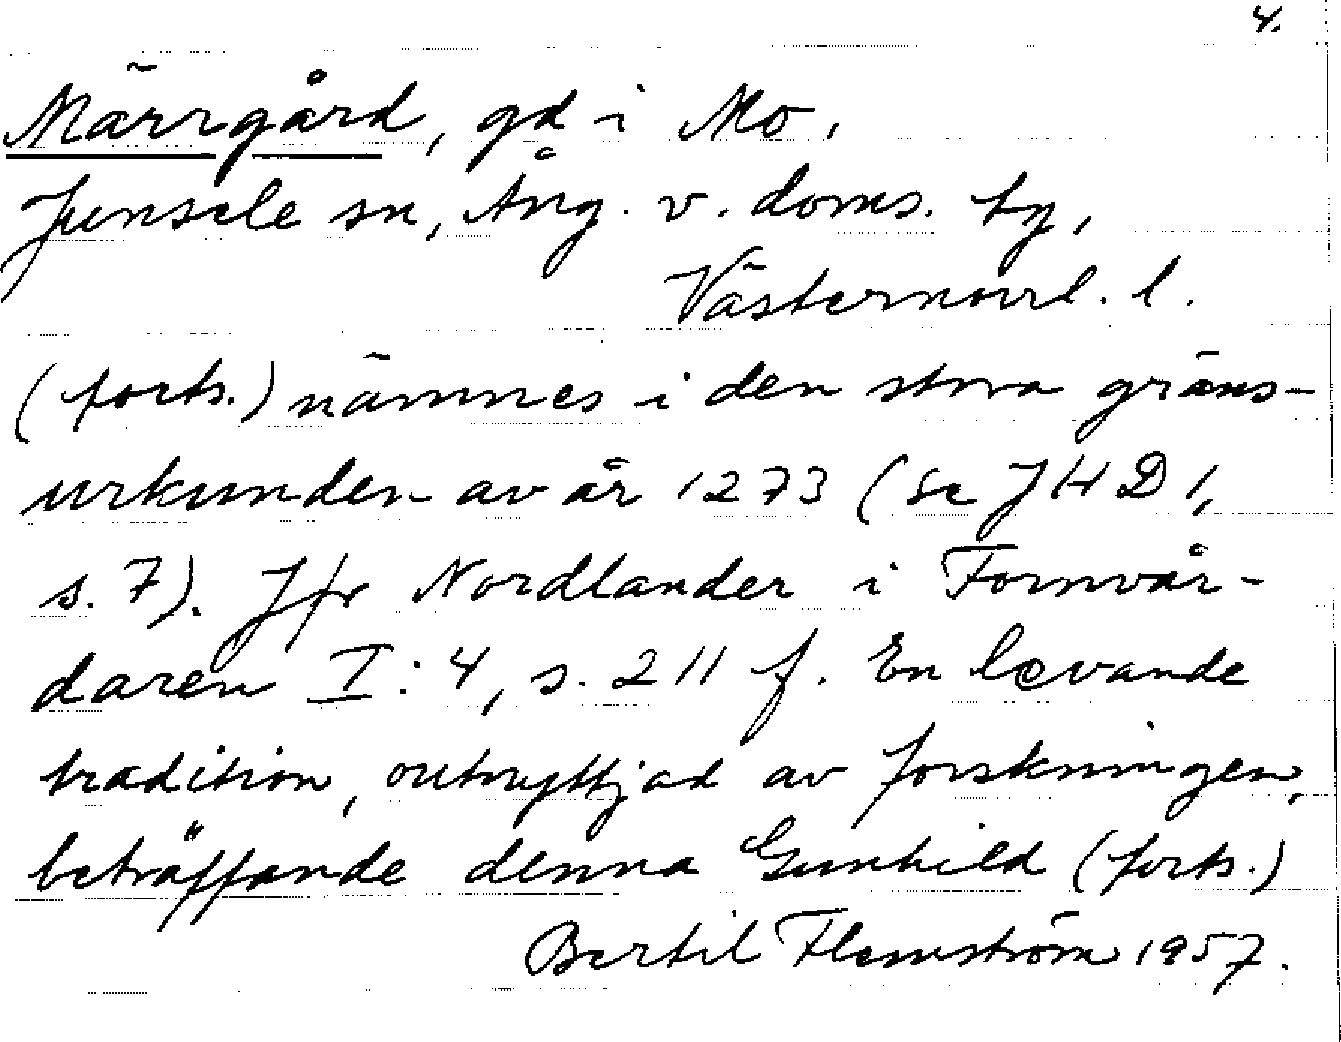 4.
Märrgård, gd i Mo,
Junsele sn, Ång. v. doms. by,
Västernorrl. l.
(forts.) nämnes i den stora gräns-
urkunden av år 1273 (se JHD 1,
s. 7). Jfr Nordlander i Fornvår-
daren I:4, s. 211 f. En levande
tradition, outnyttjad av forskningen,
beträffande denna Gunhild (forts.)
Bertil Flemström 1957.